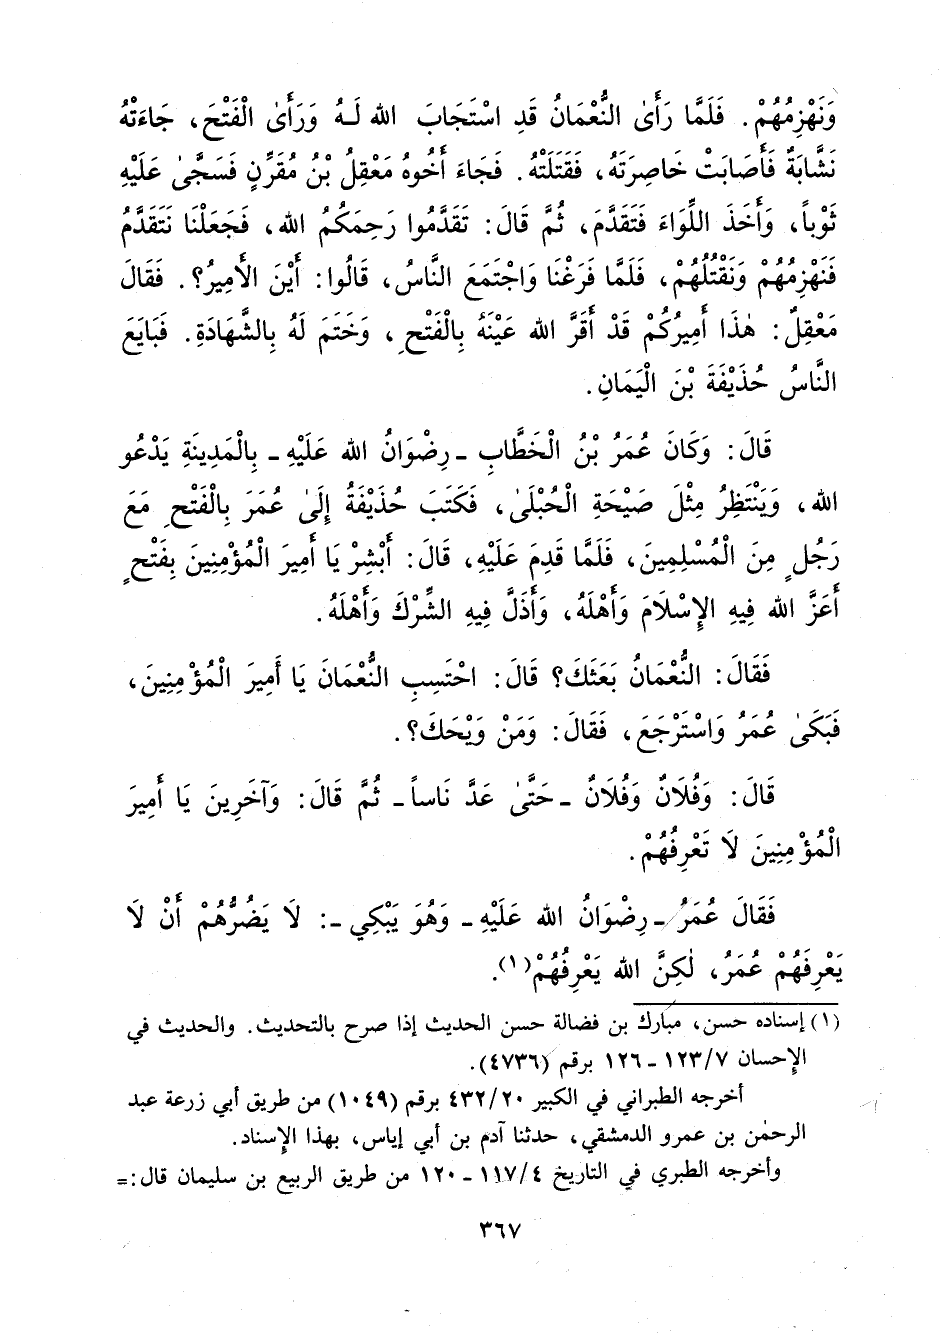 وَنَهْزِمُهُمْ. فَلَمَّا رَأَىٰ النُّعْمَانُ قَدِ اسْتَجَابَ الله لَهُ وَرَأَىٰ الْفَتْحَ، جَاءَتْهُ
نَشَّابَةٌ فَأَصَابَتْ خَاصِرَتَهُ، فَقَتَلَتْهُ. فَجَاءَ أَخُوهُ مَعْقِلُ بْنُ مُقَرِّنٍ فَسَجَّىٰ عَلَيْهِ
ثَوْباً، وَأَخَذَ اللِّوَاءَ فَتَقَدَّمَ، ثُمَّ قَالَ: تَقَدَّمُوا رَحِمَكُمُ الله، فَجَعَلْنَا نَتَقَدَّمُ
فَنَهْزِمُهُمْ وَنَقْتُلُهُمْ، فَلَمَّا فَرَغْنَا وَاجْتَمَعَ النَّاسُ، قَالُوا: أَيْنَ الأَمِيرُ؟. فَقَالَ
مَعْقِلٌ: هٰذَا أَمِيرُكُمْ قَدْ أَقَرَّ الله عَيْنَهُ بِالْفَتْحِ، وَخَتَمَ لَهُ بِالشَّهَادَةِ. فَبَايَعَ
النَّاسُ حُذَيْفَةَ بْنَ الْيَمَانِ.
قَالَ: وَكَانَ عُمَرُ بْنُ الْخَطَّابِ ـ رِضْوَانُ الله عَلَيْهِ ـ بِالْمَدِينَةِ يَدْعُو
الله، وَيَنْتَظِرُ مِثْلَ صَيْحَةِ الْحُبْلَىٰ، فَكَتَبَ حُذَيْفَةُ إِلَىٰ عُمَرَ بِالْفَتْحِ مَعَ
رَجُلٍ مِنَ الْمُسْلِمِينَ، فَلَمَّا قَدِمَ عَلَيْهِ، قَالَ: أَبْشِرْ يَا أَمِيرَ الْمُؤْمِنِينَ بِفَتْحٍ
أَعَزَّ الله فِيهِ الإِسْلَامَ وَأَهْلَهُ، وَأَذَلَّ فِيهِ الشِّرْكَ وَأَهْلَهُ.
فَقَالَ: النُّعْمَانُ بَعَثَكَ؟ قَالَ: احْتَسِبِ النُّعْمَانَ يَا أَمِيرَ الْمُؤْمِنِينَ،
فَبَكَىٰ عُمَرُ وَاسْتَرْجَعَ، فَقَالَ: وَمَنْ وَيْحَكَ؟.
قَالَ: وَفُلَانٌ وَفُلَانٌ ـ حَتَّىٰ عَدَّ نَاساً ـ ثُمَّ قَالَ: وَآخَرِينَ يَا أَمِيرَ
الْمُؤْمِنِينَ لَا تَعْرِفُهُمْ.
فَقَالَ عُمَرُ ـ رِضْوَانُ الله عَلَيْهِ ـ وَهُوَ يَبْكِي ـ: لَا يَضُرُّهُمْ أَنْ لَا
يَعْرِفَهُمْ عُمَرُ، لٰكِنَّ الله يَعْرِفُهُمْ(١).
(١) إسناده حسن، مبارك بن فضالة حسن الحديث إذا صرح بالتحديث. والحديث في
الإحسان ١٢٣/٧ ـ ١٢٦ برقم (٤٧٣٦).
أخرجه الطبراني في الكبير ٤٣٢/٢٠ برقم (١٠٤٩) من طريق أبي زرعة عبد
الرحمٰن بن عمرو الدمشقي، حدثنا آدم بن أبي إياس، بهذا الإسناد.
وأخرجه الطبري في التاريخ ١١٧/٤ ـ ١٢٠ من طريق الربيع بن سليمان قال:=
٣٦٧